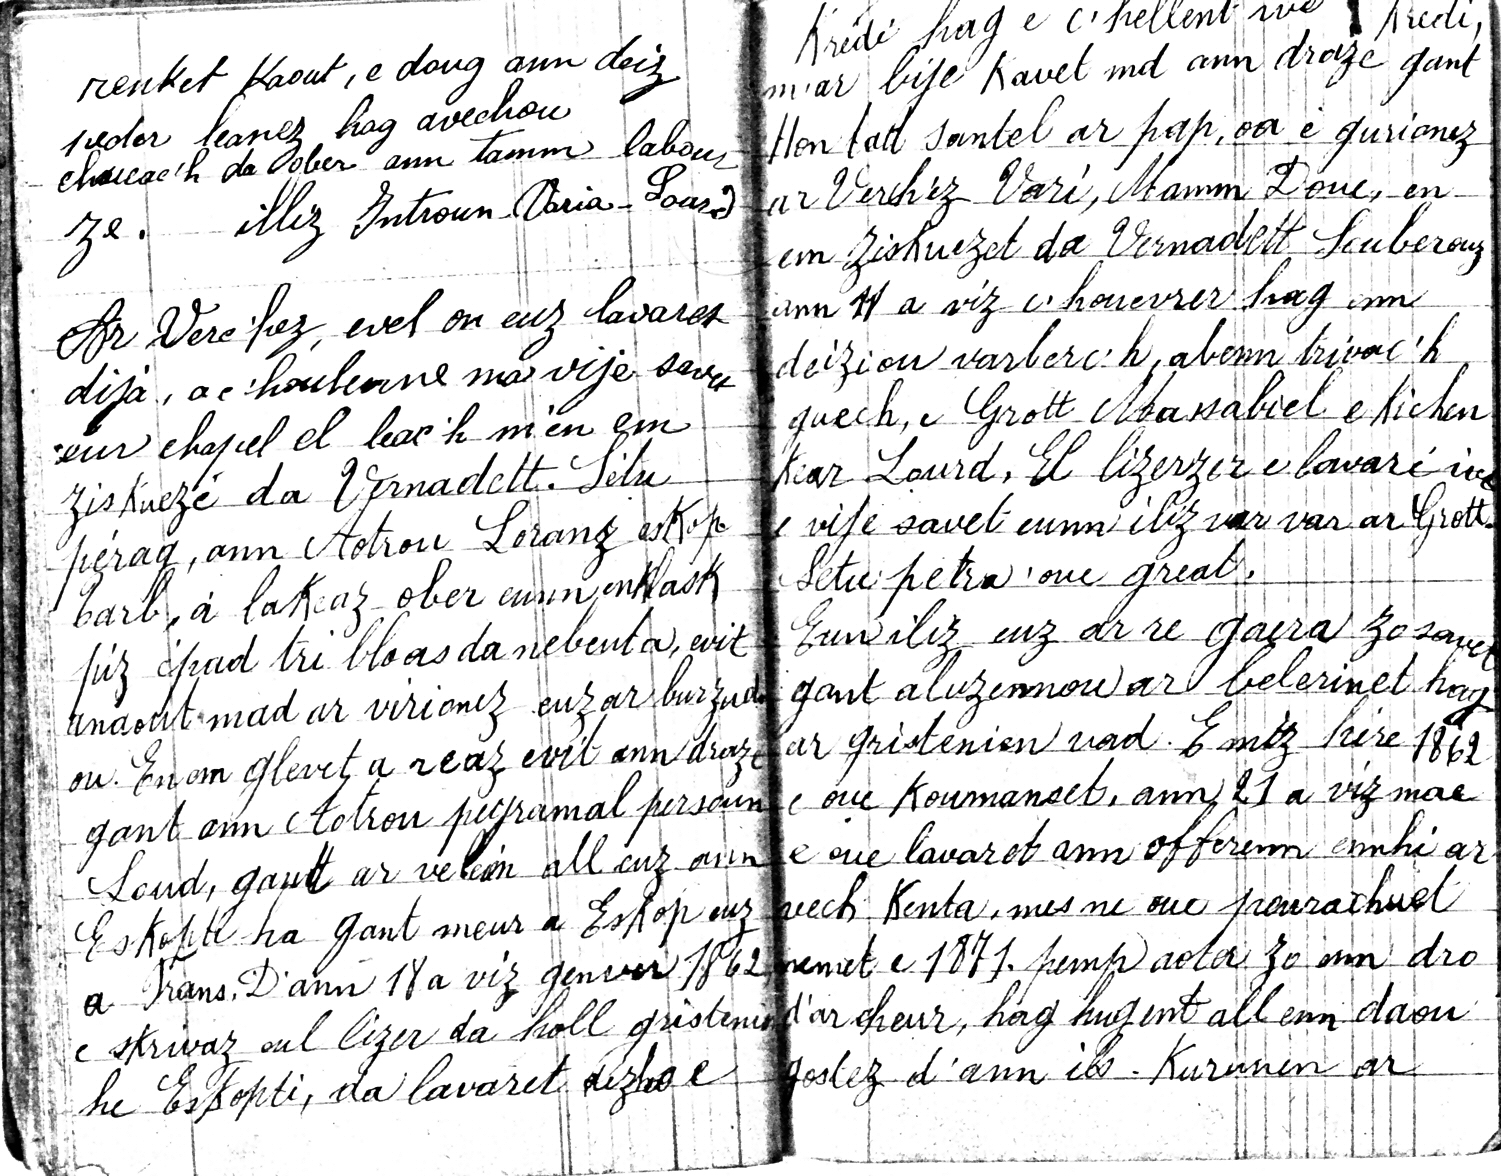 renket Kaout, e doug ann deiz
veder leanez hag avechou
choueac'h da ober ann tamm labour
ze. illiz Introun Varia Lourd
Ar Verc'hez, evel on euz lavaret
dija, a c'houlenne ma vije savet
eur chapel el leac'h m'en em
ziskueze da Vernadett. Setu
pérag, ann Aotrou Loranz eskop
Tarb, a lakeaz ober eunn enklask
piz épad tri bloas da nebeuta, evit
anaout mad ar virionez euz ar burzud
ou. En om glevet a reaz evit ann draze
gant ann Aotrou peyramal persoun
Loud, gant ar veleien all euz ann
Eskopti ha gant meur a Eskop euz
a Frans. D'ann 18 a viz genver 1862
e skrivaz eul lizer da holl gristenien
he Eskopti, da lavaret dezho e
Kredé hag e c'hellent ive Kredi,
m'ar bije Kavet mad ann draze gant
Hon tad santel ar pap, oa é gurionez
ar Verc'hez Vari, Mamm Doue, en
em ziskuezet da Vernadett Souberouz
ann 11 a viz c'houevrer hag enn
deiziou varlerc'h, abenn trivac'h
guech, e Grott Massabiel e Kichen
Kear Lourd. El lizerzer e lavaré ive
e vije savet eunn iliz var var ar Grott.
Setu petra oue great.
Eun iliz euz ar re gaera zo savet
gant aluzennou ar belerinet hag
ar gristenien vad. E miz hère 1862
e oue Koumanset, ann 21 a viz mae
e oue lavaret ann offerenn ennhi ar
vech Kenta, mes ne oue peurachuet
nemet e 1871. pemp aoter zo enn dro
d'ar cheur, hag hugent all enn daou
gostez d'ann ilis. Kurunen ar